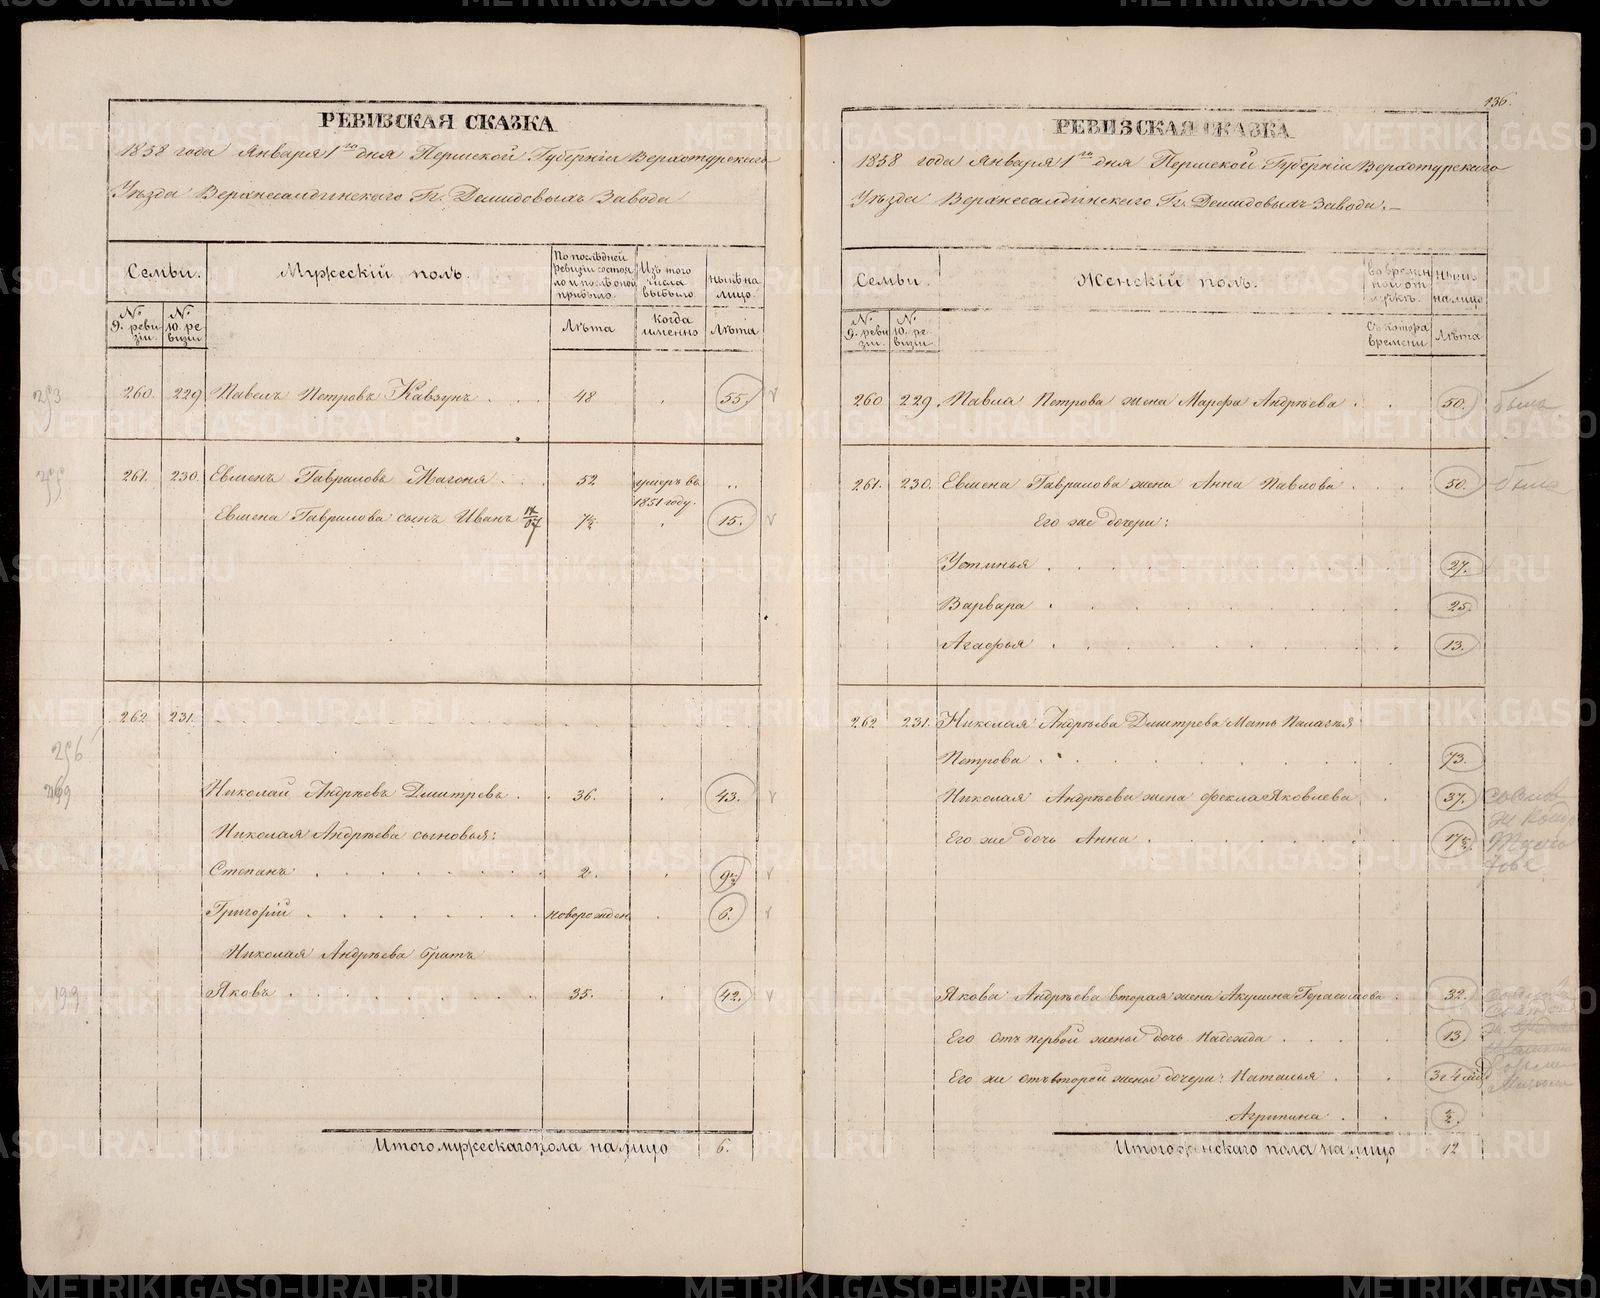 РЕВИЗСКАЯ СКАЗКА
1858 года Января 1го дня Пермской Губерніи Верхотурскаго
Уѣзда Верхнесалдинскаго Гг. Демидовыхъ Завода
Семьи.
Мужескій полъ.
По послѣдней ревизіи состояло и послѣ оной прибыло.
Изъ того числа выбыло.
Нынѣ на лицо.
№ 9. ревизіи.
№ 10. ревизіи
Лѣта
Когда именно
Лѣта
253
260. 229 Павелъ Петровъ 48 55.
261. 230. Евменъ Гавриловъ Магоня 52 умеръ въ 1851 году.
Евмена Гаврилова сынъ Иванъ 7½ 15.
262 231.
256
Николай Андрѣевъ Дмитревъ 36. 43.
Николая Андрѣева сыновья:
Степанъ 2. 9½
Григорій новорожден 6.
Николая Андрѣева братъ
199
Яковъ 35. 42.
Итого мужескаго пола на лицо 6.
136.
РЕВИЗСКАЯ СКАЗКА
1858 года Января 1го дня Пермской Губерніи Верхотурскаго
Уѣзда Верхнесалдинскаго Гг. Демидовыхъ Завода.
Семьи.
Женскій полъ.
Во временной отлучкѣ.
Нынѣ на лицо
№ 9. ревизіи.
№ 10. ревизіи
Съ котора времени
Лѣта
260 229. Павла Петрова жена Марфа Андрѣева 50.
261. 230. Евмена Гаврилова жена Анна Павлова 50.
Его же дочери:
Устинья 27.
Варвара 25.
Агафья 13.
262 231. Николая Андрѣева Дмитрева Мать Палагѣя
Петрова 73.
Николая Андрѣева жена Фекла Яковлева 37.
Его же дочь Анна 17½
Якова Андрѣева вторая жена Акулина Герасимова 32.
Его отъ первой жены дочь Надежда 13
Его же отъ второй жены дочери: Наталья 3 и 4 мѣ
Агрипина ½.
Итого женскаго пола на лицо 12
METRIKI.GASO-URAL.RU